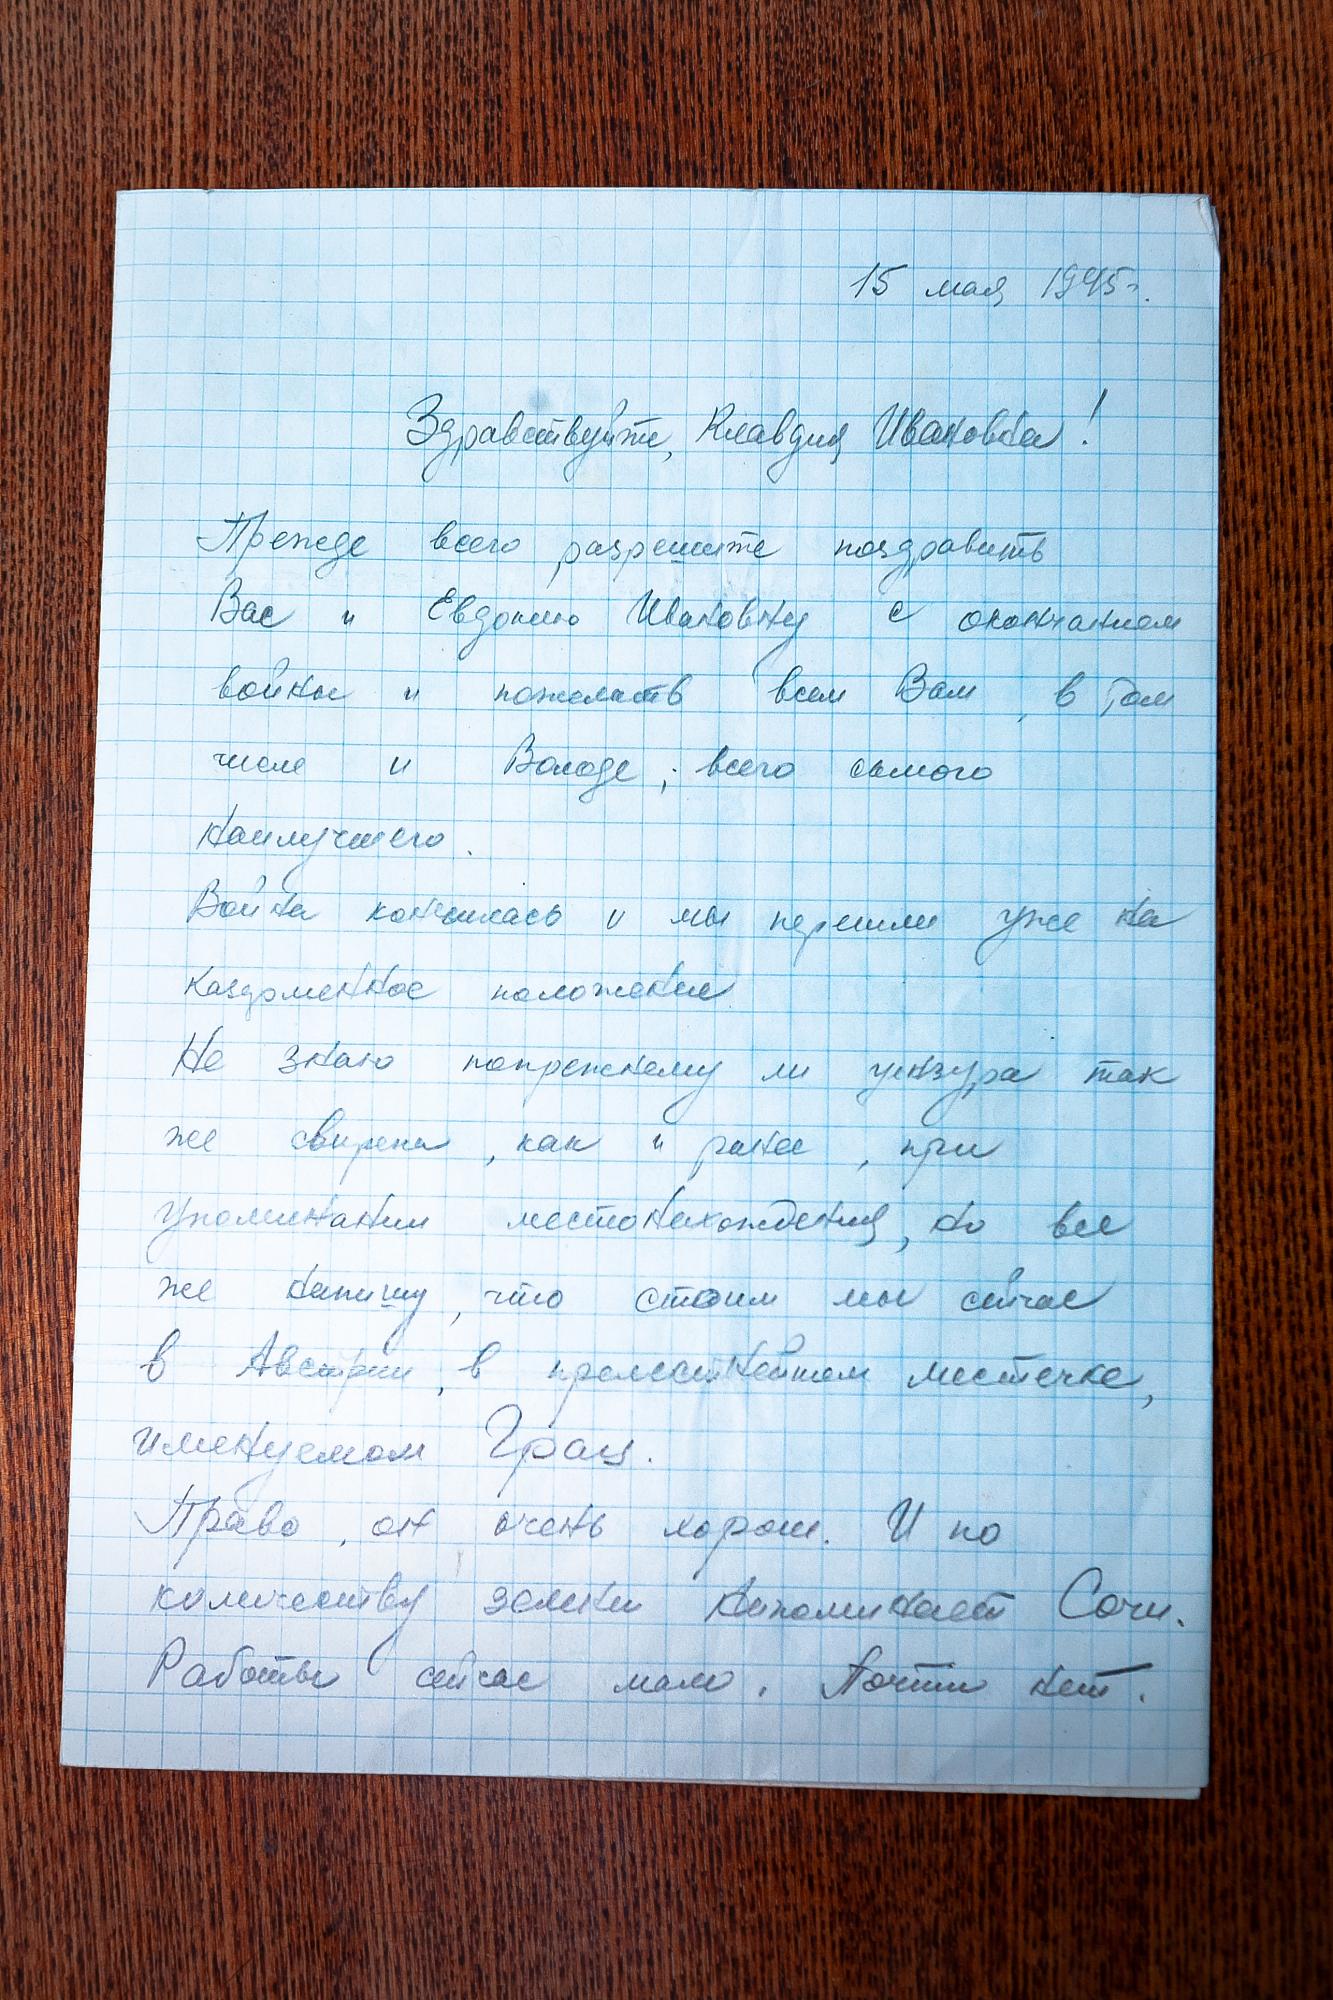 15 мая 1945г.
Здравствуйте, Клавдия Ивановна!
Прежде всего разрешите поздравить
Вас и Евдокию Ивановну с окончанием
войны и пожелать всем Вам, в том
числе и Володе, всего самого
наилучшего.
Война кончилась и мы перешли уже на
казарменное положение.
Не знаю попрежнему ли цензура так
же свирепа, как и ранее, при
упоминании местонахождения, но все
же напишу, что стоим мы сейчас
в Австрии, в прелестнейшем местечке,
именуемом Грац.
Право, он очень хорош. И по
количеству зелени напоминает Сочи.
Работы сейчас мало. Почти нет.